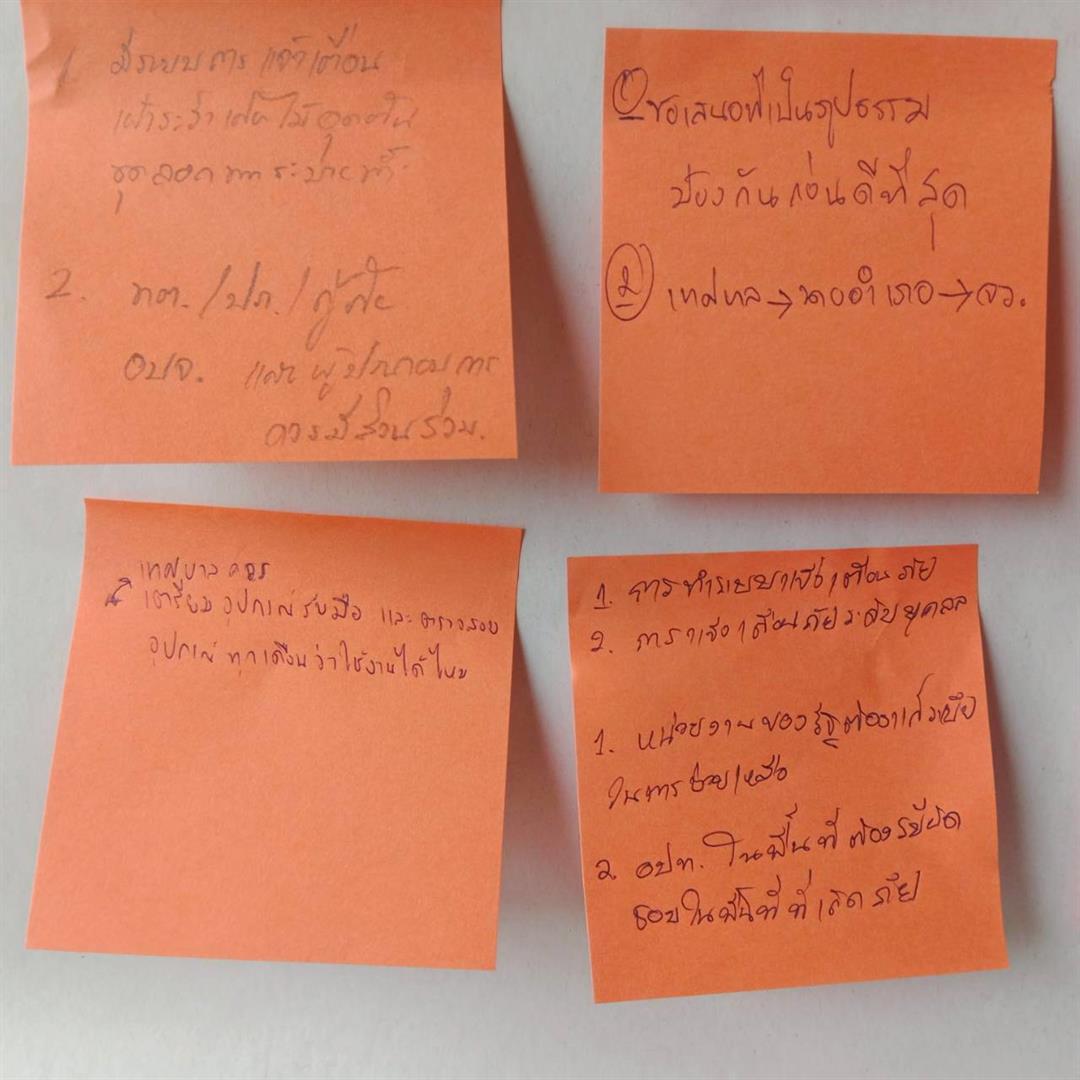 1. มีระบบการแจ้งเตือน
เฝ้าระวังเศษไม้อุดตัน
ขุดลอกทางระบายน้ำ
2. ทต. /ปภ./
อบจ. และผู้ประกอบการ
ควรมีส่วนร่วม.
① ข้อเสนอที่เป็นรูปธรรม
ป้องกันก่อนดีที่สุด
② → นายอำเภอ → จว.
เทศบาลควร
เตรียมอุปกรณ์รับมือ และตรวจสอบ
อุปกรณ์ทุกเดือนว่าใช้งานได้ไหม
1. การทำระบบแจ้งเตือนภัย
2. การแจ้งเตือนภัยระดับบุคคล
1. หน่วยงานของรัฐต้อง
ในการช่วยเหลือ
2. อปท. ในพื้นที่ต้องรับผิด
ชอบในพื้นที่ที่เกิดภัย